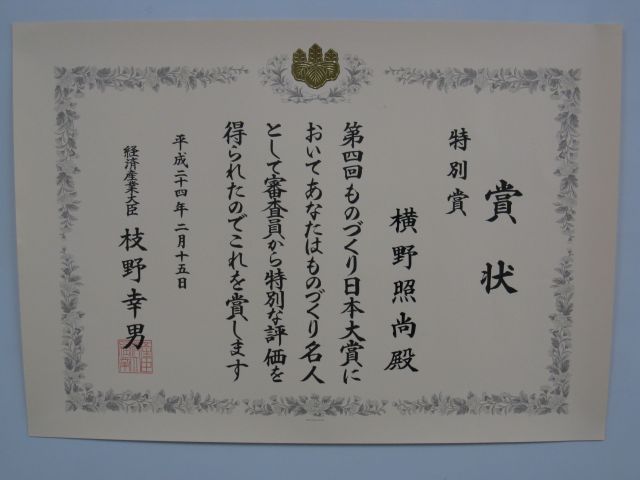 賞状
特別賞
横野照尚殿
第四回ものづくり日本大賞に
おいてあなたはものづくり名人
として審査員から特別な評価を
得られたのでこれを賞します
平成二十四年二月十五日
経済産業大臣 枝野幸男